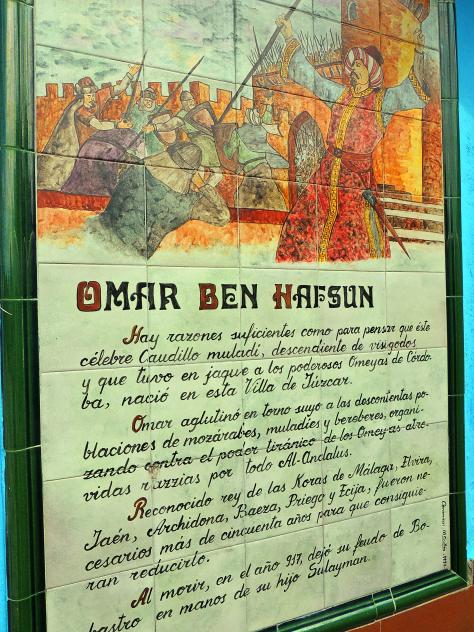 OMAR BEN HAFSUN
Hay razones suficientes como para pensar que éste
célebre Caudillo muladí, descendiente de visigodos
y que tuvo en jaque a los poderosos Omeyas de Córdo-
ba, nació en esta Villa de Júzcar.
Omar aglutinó en torno suyo a las descontentas po-
blaciones de mozárabes, muladies y bereberes, organi-
zando contra el poder tiránico de los Omeyas atre-
vidas razzias por todo Al-Andalus.
Reconocido rey de las Koras de Málaga, Elvira,
Jaén, Archidona, Baeza, Priego y Ecija, fueron ne-
cesarios más de cincuenta años para que consiguie-
ran reducirlo.
Al morir, en el año 917, dejó su feudo de Bo-
bastro en manos de su hijo Sulayman.